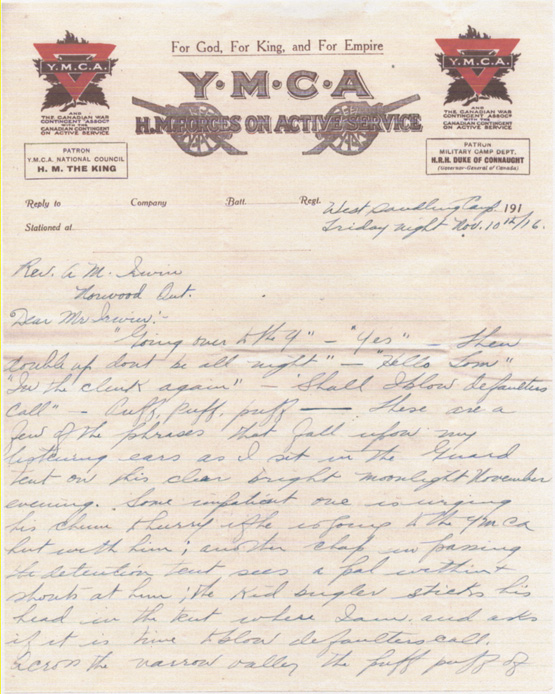 For God, For King, and For Empire
Y.M.C.A.
Y·M·C·A
Y.M.C.A.
AND
THE CANADIAN WAR
CONTINGENT ASSOCN
WITH THE
CANADIAN CONTINGENT
ON ACTIVE SERVICE
H.M. FORCES ON ACTIVE SERVICE
AND
THE CANADIAN WAR
CONTINGENT ASSOCN
WITH THE
CANADIAN CONTINGENT
ON ACTIVE SERVICE
PATRON
Y.M.C.A. NATIONAL COUNCIL
H. M. THE KING
PATRON
MILITARY CAMP DEPT.
H.R.H. DUKE OF CONNAUGHT
(Governor-General of Canada)
Reply to Company Batt. Regt. West Sandling Camp. 191
Stationed at Friday night Nov. 10th/16.
Rev. A. M. Irwin
Norwood Ont.
Dear Mr Irwin:-
"Going over to the Y" - "Yes" - "Then
double up dont be all night" - "Hello Tom"
"In the clink again" - "Shall I blow defaulters
call" - Puff, puff, puff — These are a
few of the phrases that fall upon my
listening ears as I sit in the Guard
tent on this clear bright moonlight November
evening. Some impatient one is urging
his chum to hurry if he is going to the YMCA
hut with him; another chap in passing
the detention tent sees a pal within &
shouts at him; the Kid bugler sticks his
head in the tent where I am and asks
if it is time to blow defaulters call.
Across the narrow valley the puff puff of